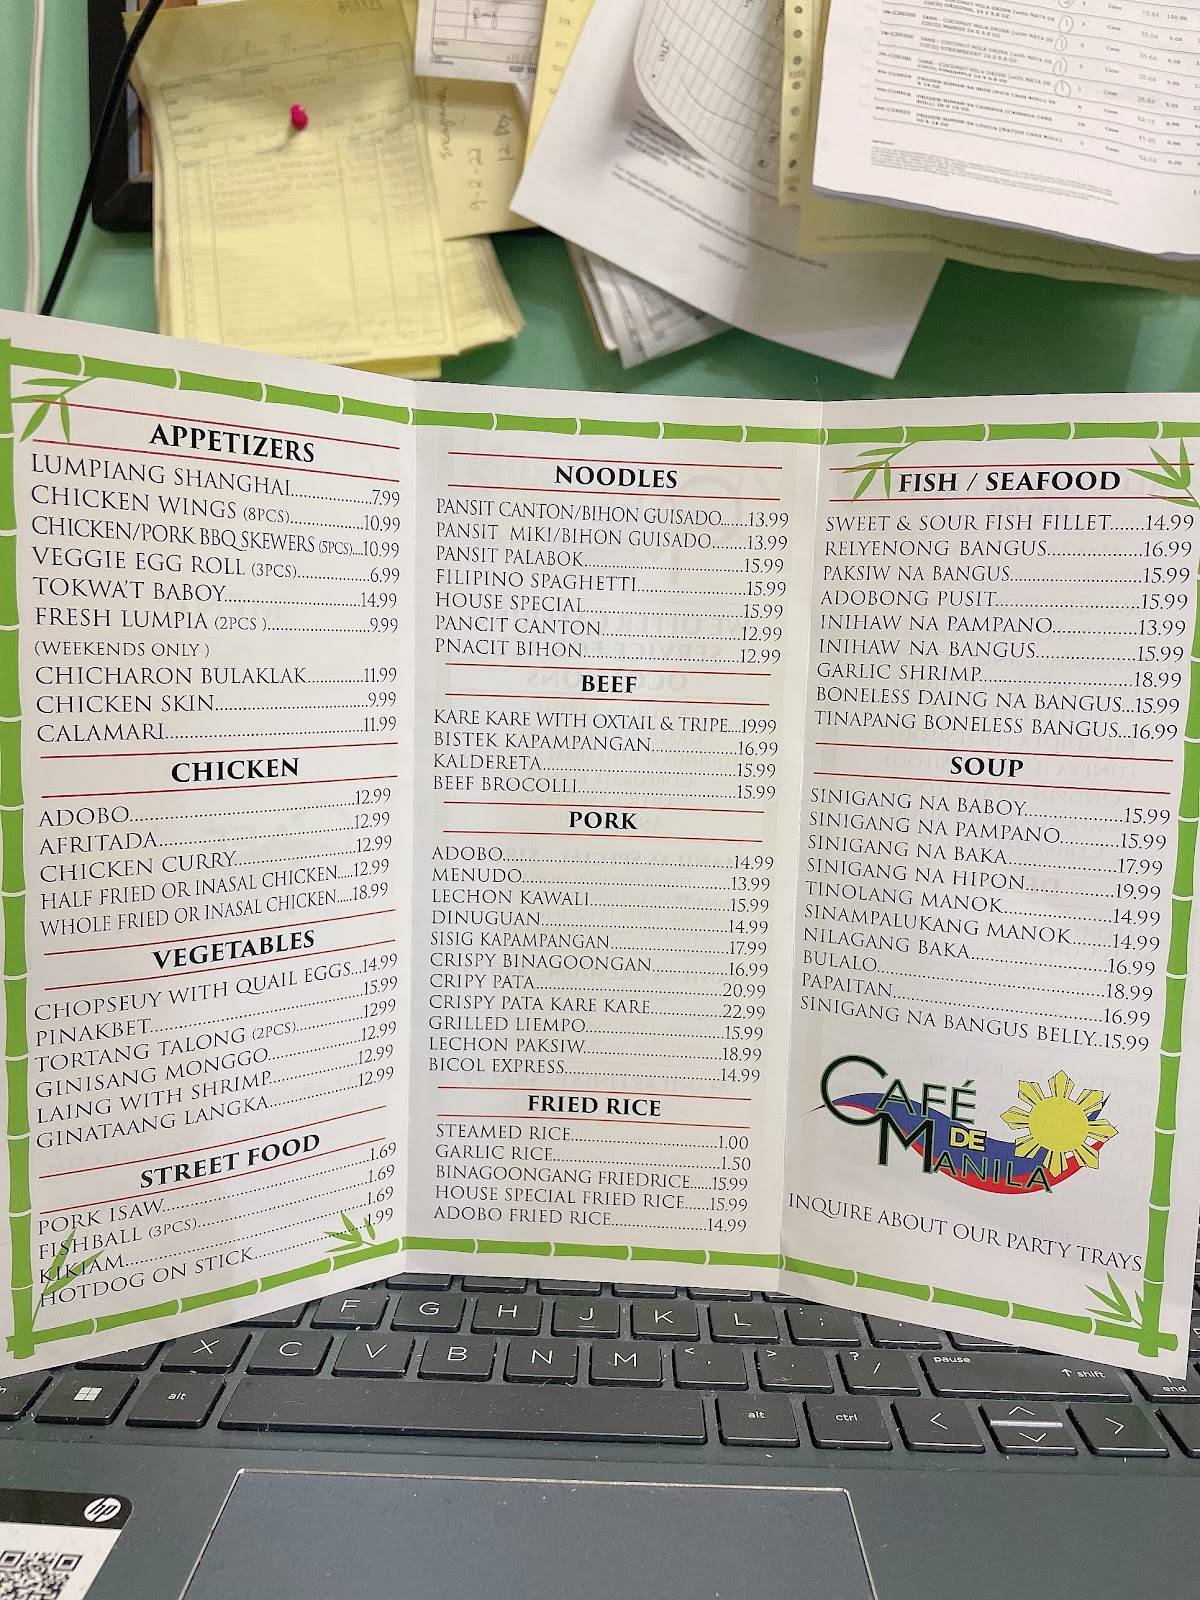 9-2-22
12 Boy
APPETIZERS
LUMPIANG SHANGHAI....................7.99
CHICKEN WINGS (8PCS)....................10.99
CHICKEN/PORK BBQ SKEWERS (5PCS)....10.99
VEGGIE EGG ROLL (3PCS)....................6.99
TOKWA'T BABOY....................14.99
FRESH LUMPIA (2PCS )....................9.99
(WEEKENDS ONLY )
CHICHARON BULAKLAK....................11.99
CHICKEN SKIN....................9.99
CALAMARI....................11.99
CHICKEN
ADOBO....................12.99
AFRITADA....................12.99
CHICKEN CURRY....................12.99
HALF FRIED OR INASAL CHICKEN.....12.99
WHOLE FRIED OR INASAL CHICKEN.....18.99
VEGETABLES
CHOPSEUY WITH QUAIL EGGS...14.99
PINAKBET....................15.99
TORTANG TALONG (2PCS)....................1299
GINISANG MONGGO....................12.99
LAING WITH SHRIMP....................12.99
GINATAANG LANGKA....................12.99
STREET FOOD
PORK ISAW....................1.69
FISHBALL (3PCS)....................1.69
KIKIAM....................1.69
HOTDOG ON STICK....................1.99
NOODLES
PANSIT CANTON/BIHON GUISADO......13.99
PANSIT MIKI/BIHON GUISADO........13.99
PANSIT PALABOK....................15.99
FILIPINO SPAGHETTI....................15.99
HOUSE SPECIAL....................15.99
PANCIT CANTON....................12.99
PNACIT BIHON....................12.99
BEEF
KARE KARE WITH OXTAIL & TRIPE...1999
BISTEK KAPAMPANGAN....................16.99
KALDERETA....................15.99
BEEF BROCOLLI....................15.99
PORK
ADOBO....................14.99
MENUDO....................13.99
LECHON KAWALI....................15.99
DINUGUAN....................14.99
SISIG KAPAMPANGAN....................17.99
CRISPY BINAGOONGAN....................16.99
CRIPY PATA....................20.99
CRISPY PATA KARE KARE....................22.99
GRILLED LIEMPO....................15.99
LECHON PAKSIW....................18.99
BICOL EXPRESS....................14.99
FRIED RICE
STEAMED RICE....................1.00
GARLIC RICE....................1.50
BINAGOONGANG FRIEDRICE.....15.99
HOUSE SPECIAL FRIED RICE.....15.99
ADOBO FRIED RICE....................14.99
FISH / SEAFOOD
SWEET & SOUR FISH FILLET.......14.99
RELYENONG BANGUS....................16.99
PAKSIW NA BANGUS....................15.99
ADOBONG PUSIT....................15.99
INIHAW NA PAMPANO....................13.99
INIHAW NA BANGUS....................15.99
GARLIC SHRIMP....................18.99
BONELESS DAING NA BANGUS...15.99
TINAPANG BONELESS BANGUS...16.99
SOUP
SINIGANG NA BABOY....................15.99
SINIGANG NA PAMPANO....................15.99
SINIGANG NA BAKA....................17.99
SINIGANG NA HIPON....................19.99
TINOLANG MANOK....................14.99
SINAMPALUKANG MANOK.......14.99
NILAGANG BAKA....................16.99
BULALO....................18.99
PAPAITAN....................16.99
SINIGANG NA BANGUS BELLY..15.99
CAFÉ
DE
MANILA
INQUIRE ABOUT OUR PARTY TRAYS
F G H J K L
X C V B N M < , > . ? / pause shift end
alt alt ctrl < >
hp